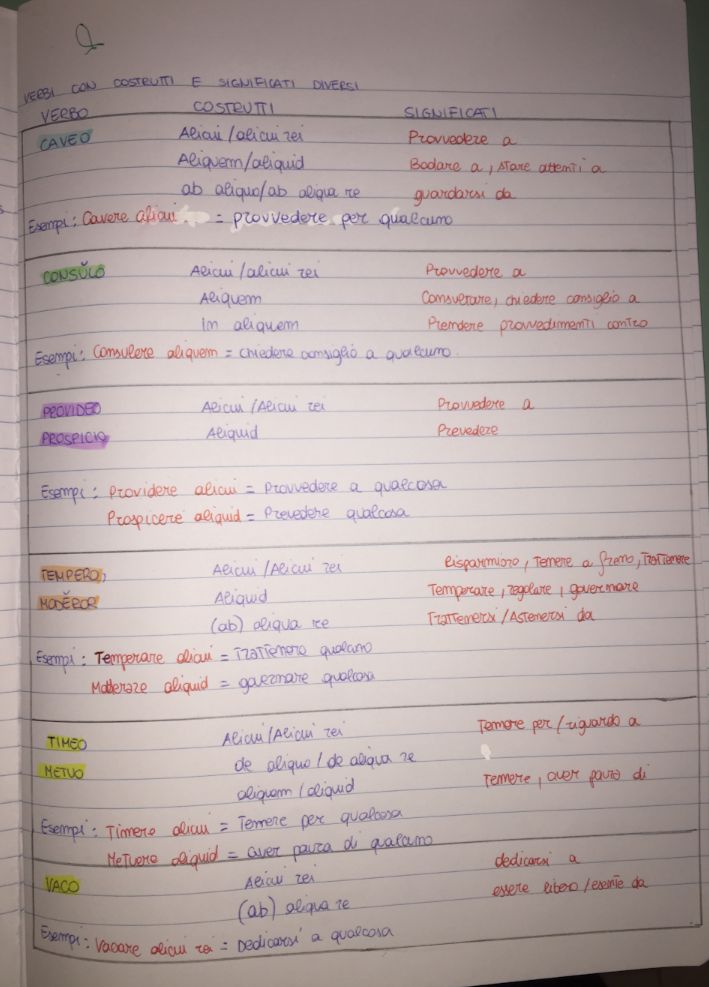 VERBI CON COSTRUTTI E SIGNIFICATI DIVERSI
VERBO COSTRUTTI SIGNIFICATI
CAVEO Alicui/alicui rei Provvedere a
Aliquem/aliquid Badare a, stare attenti a
ab aliquo/ab aliqua re guardarsi da
Esempi: Cavere alicui = provvedere per qualcuno
CONSŬLO Alicui/alicui rei Provvedere a
Aliquem Consultare, chiedere consiglio a
In aliquem Prendere provvedimenti contro
Esempi: Consulere aliquem = chiedere consiglio a qualcuno.
PROVIDEO Alicui/Alicui rei Provvedere a
PROSPICIO Aliquid Prevedere
Esempi: Providere alicui = Provvedere a qualcosa
Prospicere aliquid = Prevedere qualcosa
TEMPERO, Alicui/Alicui rei Risparmiare, Tenere a freno, Trattenere
MODĔROR Aliquid Temperare, regolare, governare
(ab) aliqua re Trattenersi/Astenersi da
Esempi: Temperare alicui = Trattenere qualcuno
Moderare aliquid = governare qualcosa
TIMEO Alicui/Alicui rei Temere per/riguardo a
METUO de aliquo/de aliqua re
aliquem/aliquid Temere, aver paura di
Esempi: Timere alicui = Temere per qualcosa
Metuere aliquid = aver paura di qualcuno
VACO Alicui rei dedicarsi a
(ab) aliqua re essere libero/esente da
Esempi: Vacare alicui rei = Dedicarsi a qualcosa